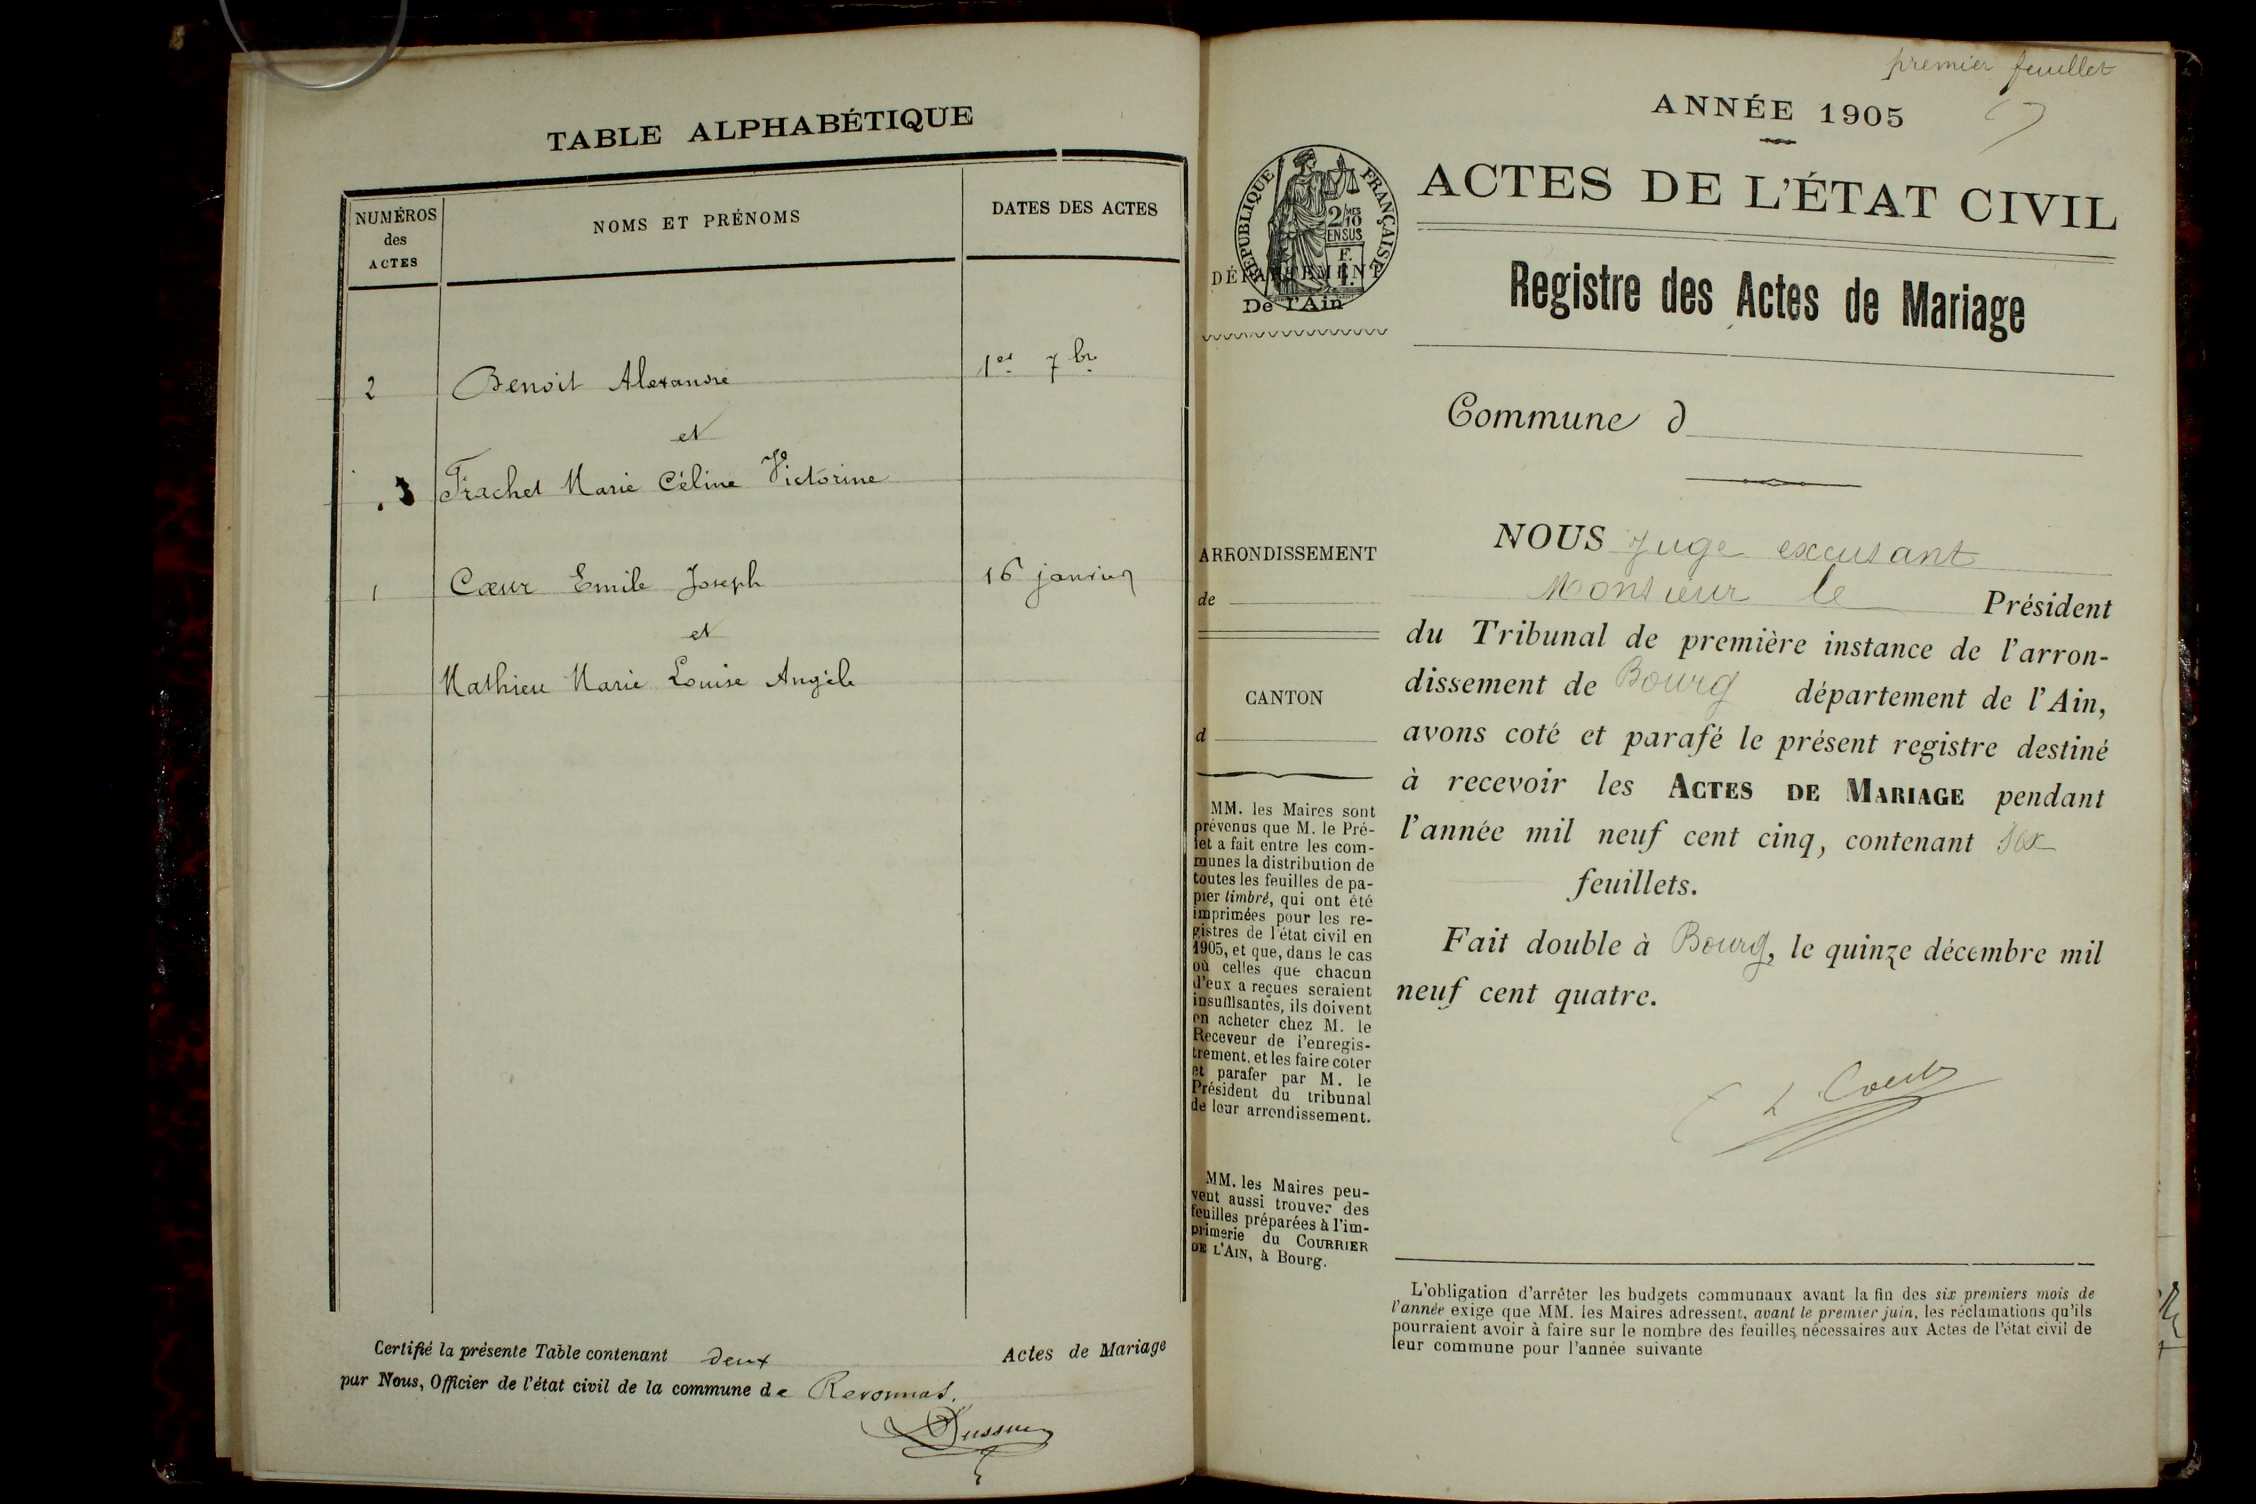 TABLE ALPHABÉTIQUE
NUMÉROS
des
ACTES
NOMS ET PRÉNOMS
DATES DES ACTES
2 Benoit Alexandre 1er 7br
et
Frachet Marie Céline Victorine
1 Cœur Emile Joseph 16 janvier
et
Mathieu Marie Louise Angèle
Certifié la présente Table contenant deux Actes de Mariage
par Nous, Officier de l'état civil de la commune de Revonnas.
premier feuillet
ANNÉE 1905
ACTES DE L'ÉTAT CIVIL
RÉPUBLIQUE FRANÇAISE
2/10 MES
EN SUS
DÉPARTEMENT
De l'Ain
Registre des Actes de Mariage
Commune d
ARRONDISSEMENT
de
CANTON
d
MM. les Maires sont
prévenus que M. le Pré-
fet a fait entre les com-
munes la distribution de
toutes les feuilles de pa-
pier timbré, qui ont été
imprimées pour les re-
gistres de l'état civil en
1905, et que, dans le cas
où celles que chacun
d'eux a reçues seraient
insuffisantes, ils doivent
en acheter chez M. le
Receveur de l'enregis-
trement, et les faire coter
et parafer par M. le
Président du tribunal
de leur arrondissement.
MM. les Maires peu-
vent aussi trouver des
feuilles préparées à l'im-
primerie du COURRIER
DE L'AIN, à Bourg.
NOUS Juge excusant
Monsieur le Président
du Tribunal de première instance de l'arron-
dissement de Bourg département de l'Ain,
avons coté et parafé le présent registre destiné
à recevoir les ACTES DE MARIAGE pendant
l'année mil neuf cent cinq, contenant six
feuillets.
Fait double à Bourg, le quinze décembre mil
neuf cent quatre.
L'obligation d'arrêter les budgets communaux avant la fin des six premiers mois de
l'année exige que MM. les Maires adressent, avant le premier juin, les réclamations qu'ils
pourraient avoir à faire sur le nombre des feuilles nécessaires aux Actes de l'état civil de
leur commune pour l'année suivante